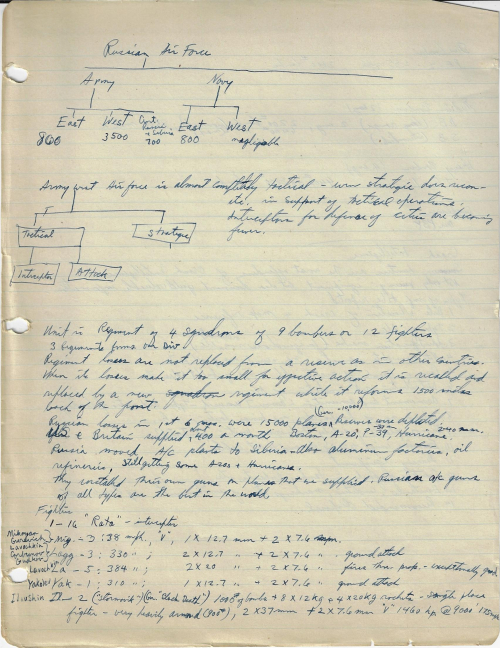 Russian Air Force
Army Navy
East West East West
800 3500 700 800 negligible
Army West Air force is almost completely tactical - even strategic does recon-
etc. in support of tactical operations.
Interceptors for defense of cities are becoming
fewer.
Tactical Strategic
Interceptor Attack
Unit is Regiment of 4 Squadrons of 9 bombers or 12 fighters
3 Regiments forms an Div.
Regiment losses are not replaced from a reserve as in other countries.
When its losses make it too small for effective action it is recalled and
replaced by a new regiment while it reforms 1500 miles
back of the front.
Russian losses in 1st 6 mos. were 15000 planes Reserves were depleted
& Britain supplied about 400 a month Boston, A-20, P-39, Hurricane,
Russia moved A/C plants to Siberia - also aluminum factories, oil
refineries, still getting some A20s + Hurricane.
They installed their own guns on planes that we supplied. Russian a/c guns
of all types are the best in the world.
Fighters
1-16 "Rata" - interceptor
Mig - 3: 38 mph, "V", 1 x 12.7 mm + 2 x 7.6 mm.
Lagg - 3: 330 " ; 2 x 12.7 " + 2 x 7.6 " - ground attack
La - 5: 384 " ; 2 x 20 " + 2 x 7.6 "
Yak - 1: 310 " ; 1 x 12.7 " + 2 x 7.6 " - ground attack
Iliushin Il - 2 ("Stormovik") ("Black Death") 1000# bombs + 8 x 12kg + 4 x 20kg rockets - single place
fighter - very heavily armored (900#), 2 x 37mm + 2 x 7.6mm "V" 1460 hp @ 9000'